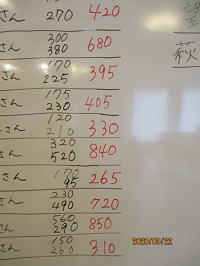 さん 270 420
300
380 680
170
さん 225 395
175
さん 230 405
120
さん 210 330
320
さん 520 840
170
さん 95 265
230
さん 490 720
560
さん 290 850
150
さん 260 310
萩
2020/09/22